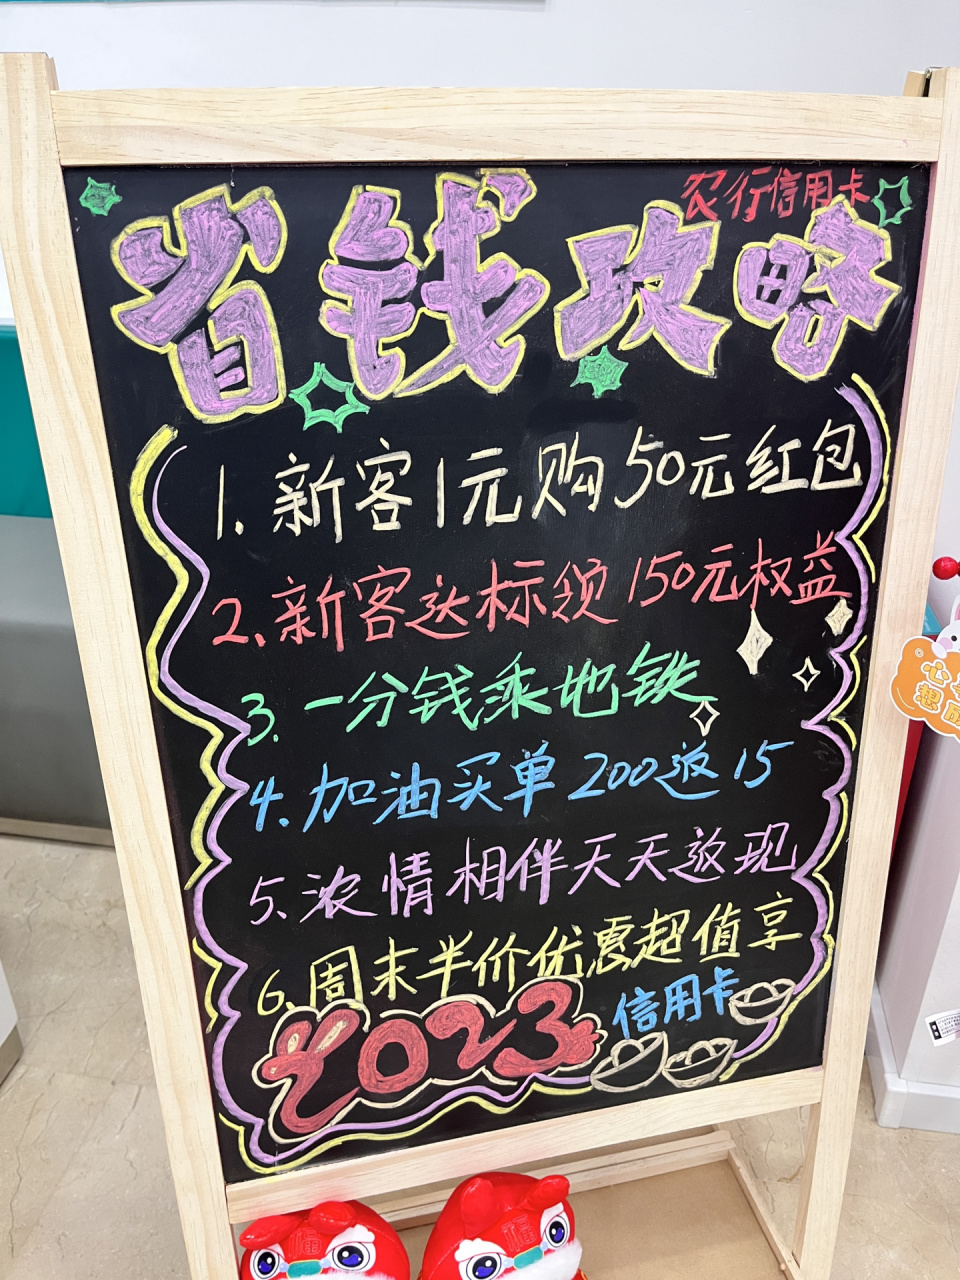 农行信用卡
省钱攻略
1.新客1元购50元红包
2.新客达标领150元权益
3.一分钱乘地铁
4.加油买单200返15
5.浓情相伴天天返现
6.周末半价优惠超值享
2023
信用卡
心
想